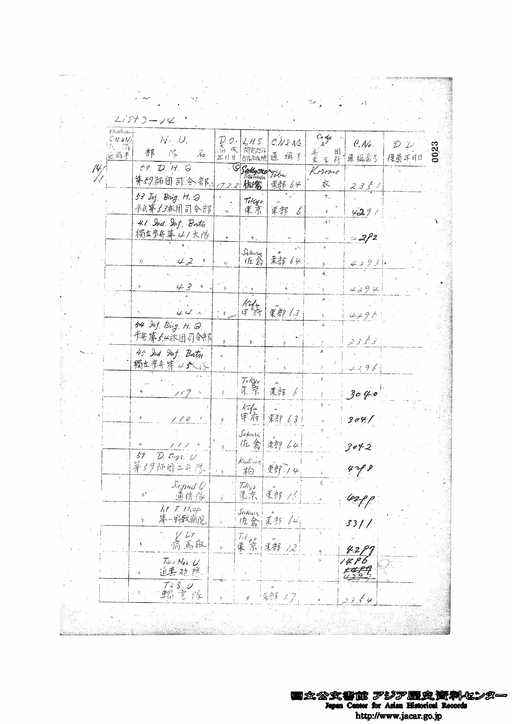 LIST 3-14
N. U.
部隊名
D.O.
L.H.S.
C.N.&No.
通稱号
Code N
C.No.
通稱番号
D.D.
復員年月日
0023
14/1
59 D. H. Q
第59師団司令部
17.2.2
佐倉
東部 64
Koromo
衣
2351
53 Inf. Brig. H. Q
步兵第53旅団司令部
Tokyo
東京
東部 6
4291
41 Ind. Inf. Batn
獨立步兵第41大隊
292
〃 42 〃
Sakura
佐倉
東部 64
4293
〃 43 〃
4294
〃 44 〃
Kofu
甲府
東部 63
4295
54 Inf Brig. H. Q
步兵第54旅団司令部
2353
45 Ind. Inf Batn
獨立步兵第45大隊
4296
〃 109 〃
Tokyo
東京
東部 6
3040
〃 110 〃
Kofu
甲府
東部 63
3041
〃 111 〃
Sakura
佐倉
東部 64
3042
59 D. Engr. U
第59師団工兵隊
柏
東部 14
4298
Signal U
〃 通信隊
Tokyo
東京
東部
4299
〃 第一野戰病院
Sakura
佐倉
東部 64
3311
〃 病馬廠
Tokyo
東京
東部 12
4297
1496
東部 17
2354
国立公文書館 アジア歴史資料センター
Japan Center for Asian Historical Records
http://www.jacar.go.jp